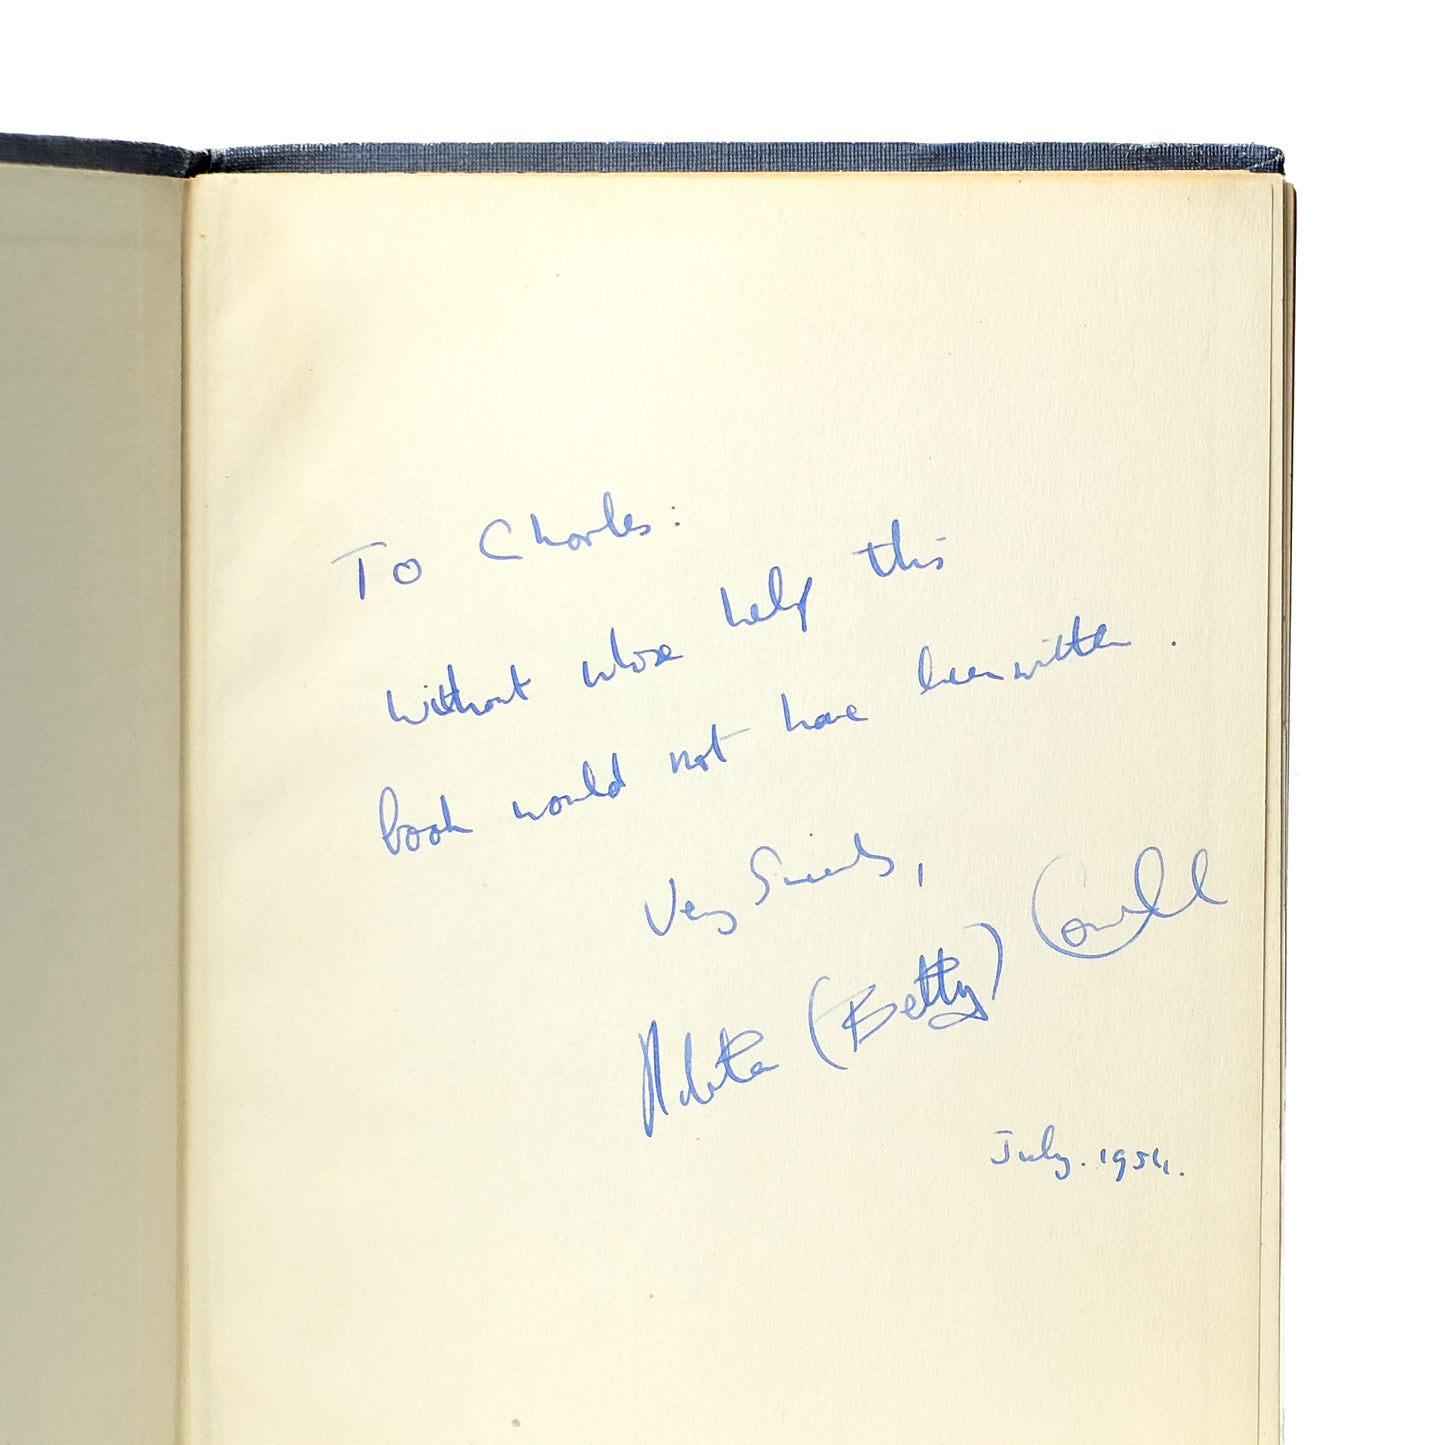 To Charles:
without whose help this
book would not have been written.
Very Sincerely,
Roberta (Betty) Cowell
July. 1954.